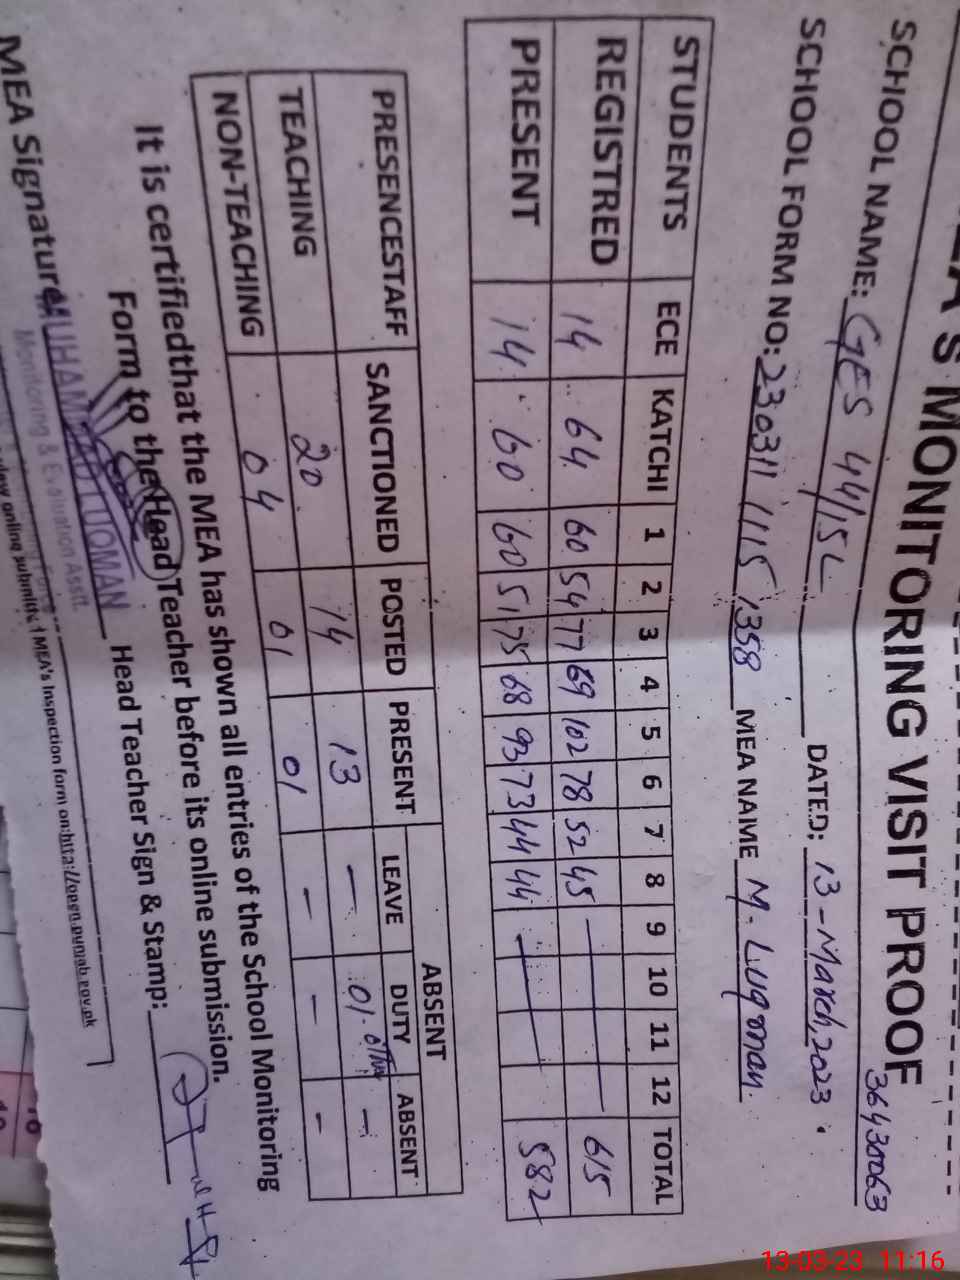 'S MONITORING VISIT PROOF
36430063
SCHOOL NAME: GES 44/15L DATED: 13-March, 2023
SCHOOL FORM NO: 230311 1115 1358 MEA NAME M. Luqman.
STUDENTS ECE KATCHI 1 2 3 4 5 6 7 8 9 10 11 12 TOTAL
REGISTRED 14 64 60 54 77 69 102 78 52 45 615
PRESENT 14 60 60 51 75 68 93 73 44 44 582
PRESENCESTAFF SANCTIONED POSTED PRESENT ABSENT
LEAVE DUTY ABSENT
TEACHING 20 14 13 — 01 —
NON-TEACHING 04 01 01 — — —
It is certifiedthat the MEA has shown all entries of the School Monitoring
Form to the Head Teacher before its online submission.
MEA Signature: MUHAMMAD LUQMAN Head Teacher Sign & Stamp:
Monitoring & Evaluation Asstt.
view online submitted MEA's Inspection form on:
13-03-23 11:16